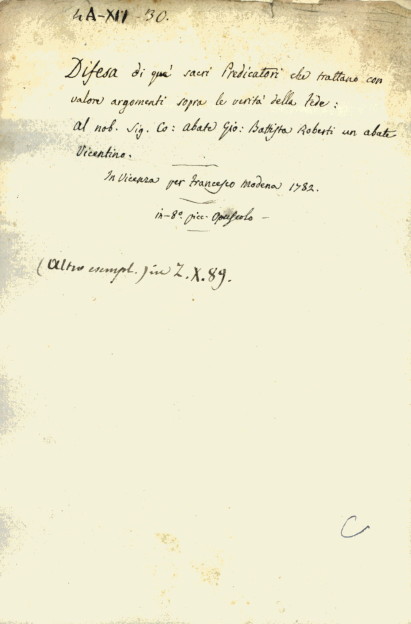 4A-XII-30.
Difesa di que' sacri Predicatori che trattano con
valore argomenti sopra le verità della Fede:
al nob. Sig. Co: Abate Gio: Battista Roberti un abate
Vicentino.
In Vicenza per Francesco Modena 1782.
in-8º. picc. Opuscolo -
(Altro esempl.) in Z.X.89.
C